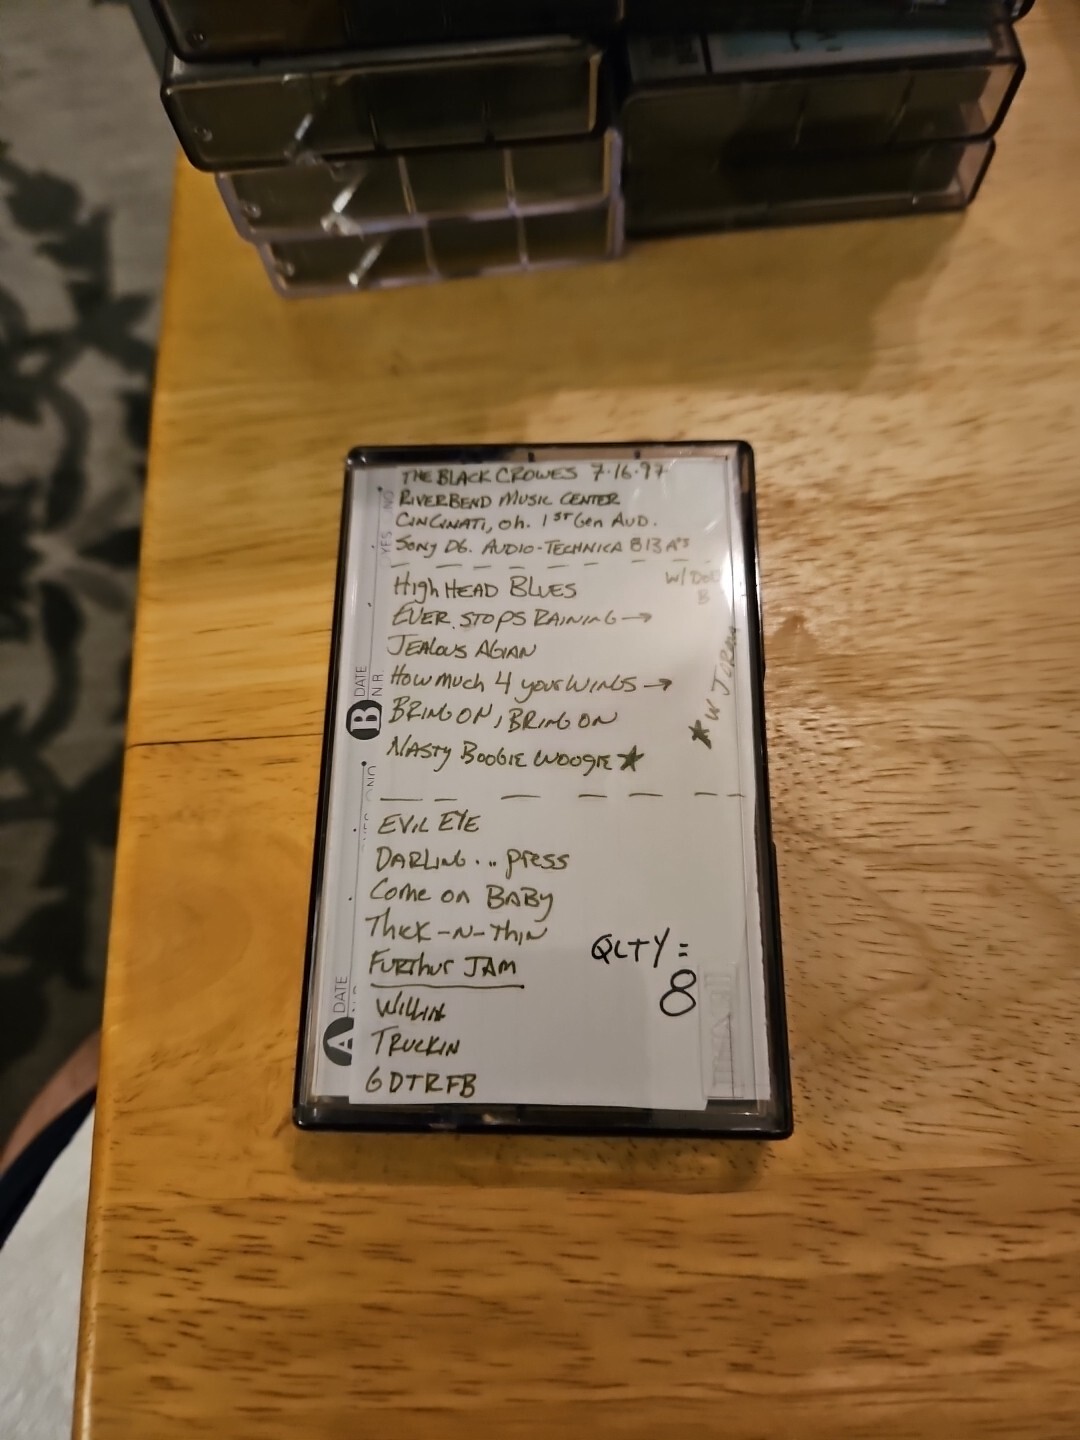 THE BLACK CROWES 7·16·97
RIVERBEND MUSIC CENTER
CINCINATI, Oh. 1ST Gen AUD.
SONY D6. AUDIO-TECHNICA 813 A's
High HEAD BLUES
W/
B
EVER STOPS RAINING →
JEALOUS AGIAN
HOW MUCH 4 YOUR WINGS →
BRING ON, BRING ON
NASTY BOOGIE WOOGIE ★
★ W
EVIL EYE
DARLING... press
Come on BABY
THICK-N-THIN
FURTHUR JAM
QLTY =
8
WILLIN
TRUCKIN
GDTRFB
B DATE
N.R.
YES
NO
A DATE